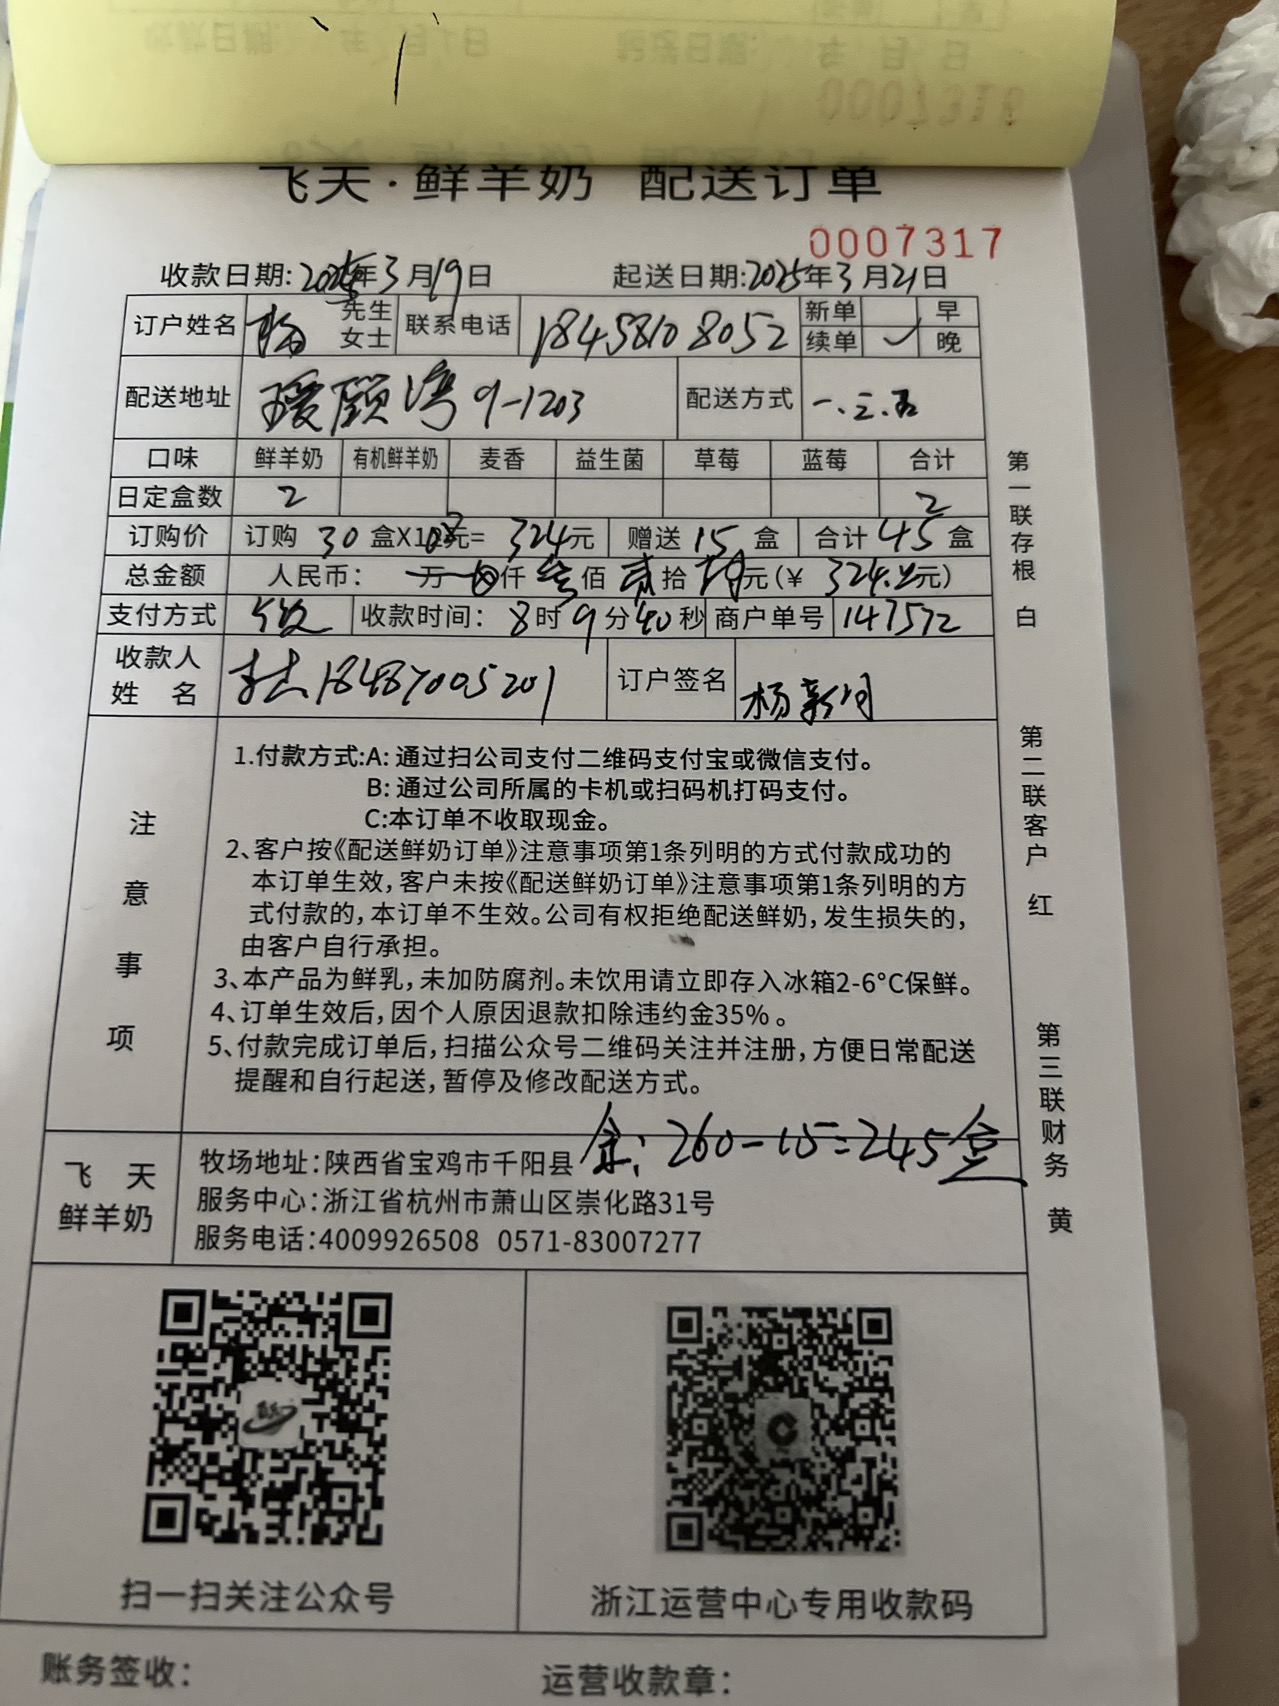 飞天·鲜羊奶 配送订单
0007317
收款日期:2025年3月19日 起送日期:2025年3月21日
订户姓名 杨 先生 女士 联系电话 18458108052 新单 早
续单 ✓ 晚
配送地址 瑷颐湾 9-1203 配送方式 一.三.五
口味 鲜羊奶 有机鲜羊奶 麦香 益生菌 草莓 蓝莓 合计
日定盒数 2 2
订购价 订购 30 盒X10.8元= 324元 赠送 15 盒 合计 45 盒
总金额 人民币: 万 仟 叁佰 贰拾 肆元(¥ 324.元)
支付方式 收款时间: 8时9分40秒 商户单号 147572
收款人
姓 名 18487005201 订户签名 杨新
注意事项
1.付款方式:A: 通过扫公司支付二维码支付宝或微信支付。
B: 通过公司所属的卡机或扫码机打码支付。
C:本订单不收取现金。
2、客户按《配送鲜奶订单》注意事项第1条列明的方式付款成功的
本订单生效,客户未按《配送鲜奶订单》注意事项第1条列明的方
式付款的,本订单不生效。公司有权拒绝配送鲜奶,发生损失的,
由客户自行承担。
3、本产品为鲜乳,未加防腐剂。未饮用请立即存入冰箱2-6°C保鲜。
4、订单生效后,因个人原因退款扣除违约金35%。
5、付款完成订单后,扫描公众号二维码关注并注册,方便日常配送
提醒和自行起送,暂停及修改配送方式。
余: 260-15=245盒
飞 天
鲜羊奶
牧场地址:陕西省宝鸡市千阳县
服务中心:浙江省杭州市萧山区崇化路31号
服务电话:4009926508 0571-83007277
第一联存根 白
第二联客户 红
第三联财务 黄
扫一扫关注公众号 浙江运营中心专用收款码
账务签收: 运营收款章: